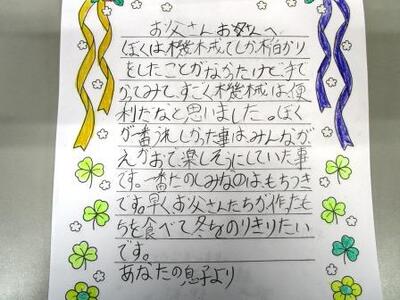 お父さんお母さんへ
ぼくは機械でしか稲かり
をしたことがなかったけど手で
かってみて、すごく機械は便
利だなと思いました。ぼく
が一番うれしかった事は、みんなが
えがおで楽しそうにしていた事
です。一番たのしみなのは、もちつき
です。早くお父さんたちが作ったも
ちを食べて冬をのりきりたい
です。
あなたの息子より